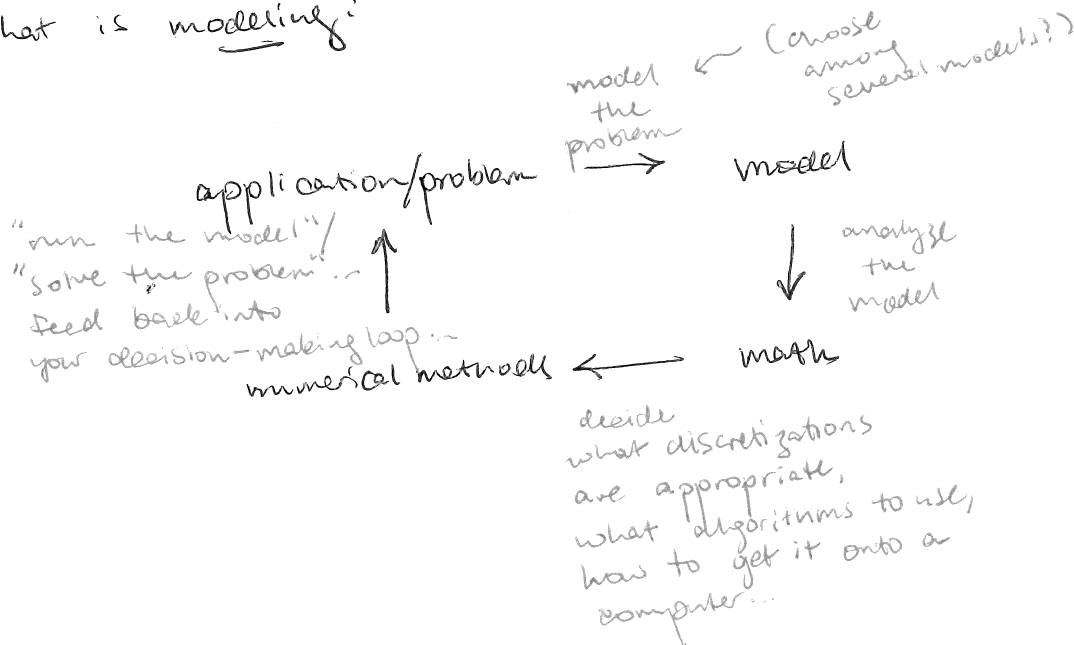 hat is modeling:
model
the
problem
(choose
among
several models?)
application/problem
model
"run the model"/
"solve the problem"...
feed back into
your decision-making loop...
analyze
the
model
numerical methods
math
decide
what discretizations
are appropriate,
what algorithms to use,
how to get it onto a
computer...